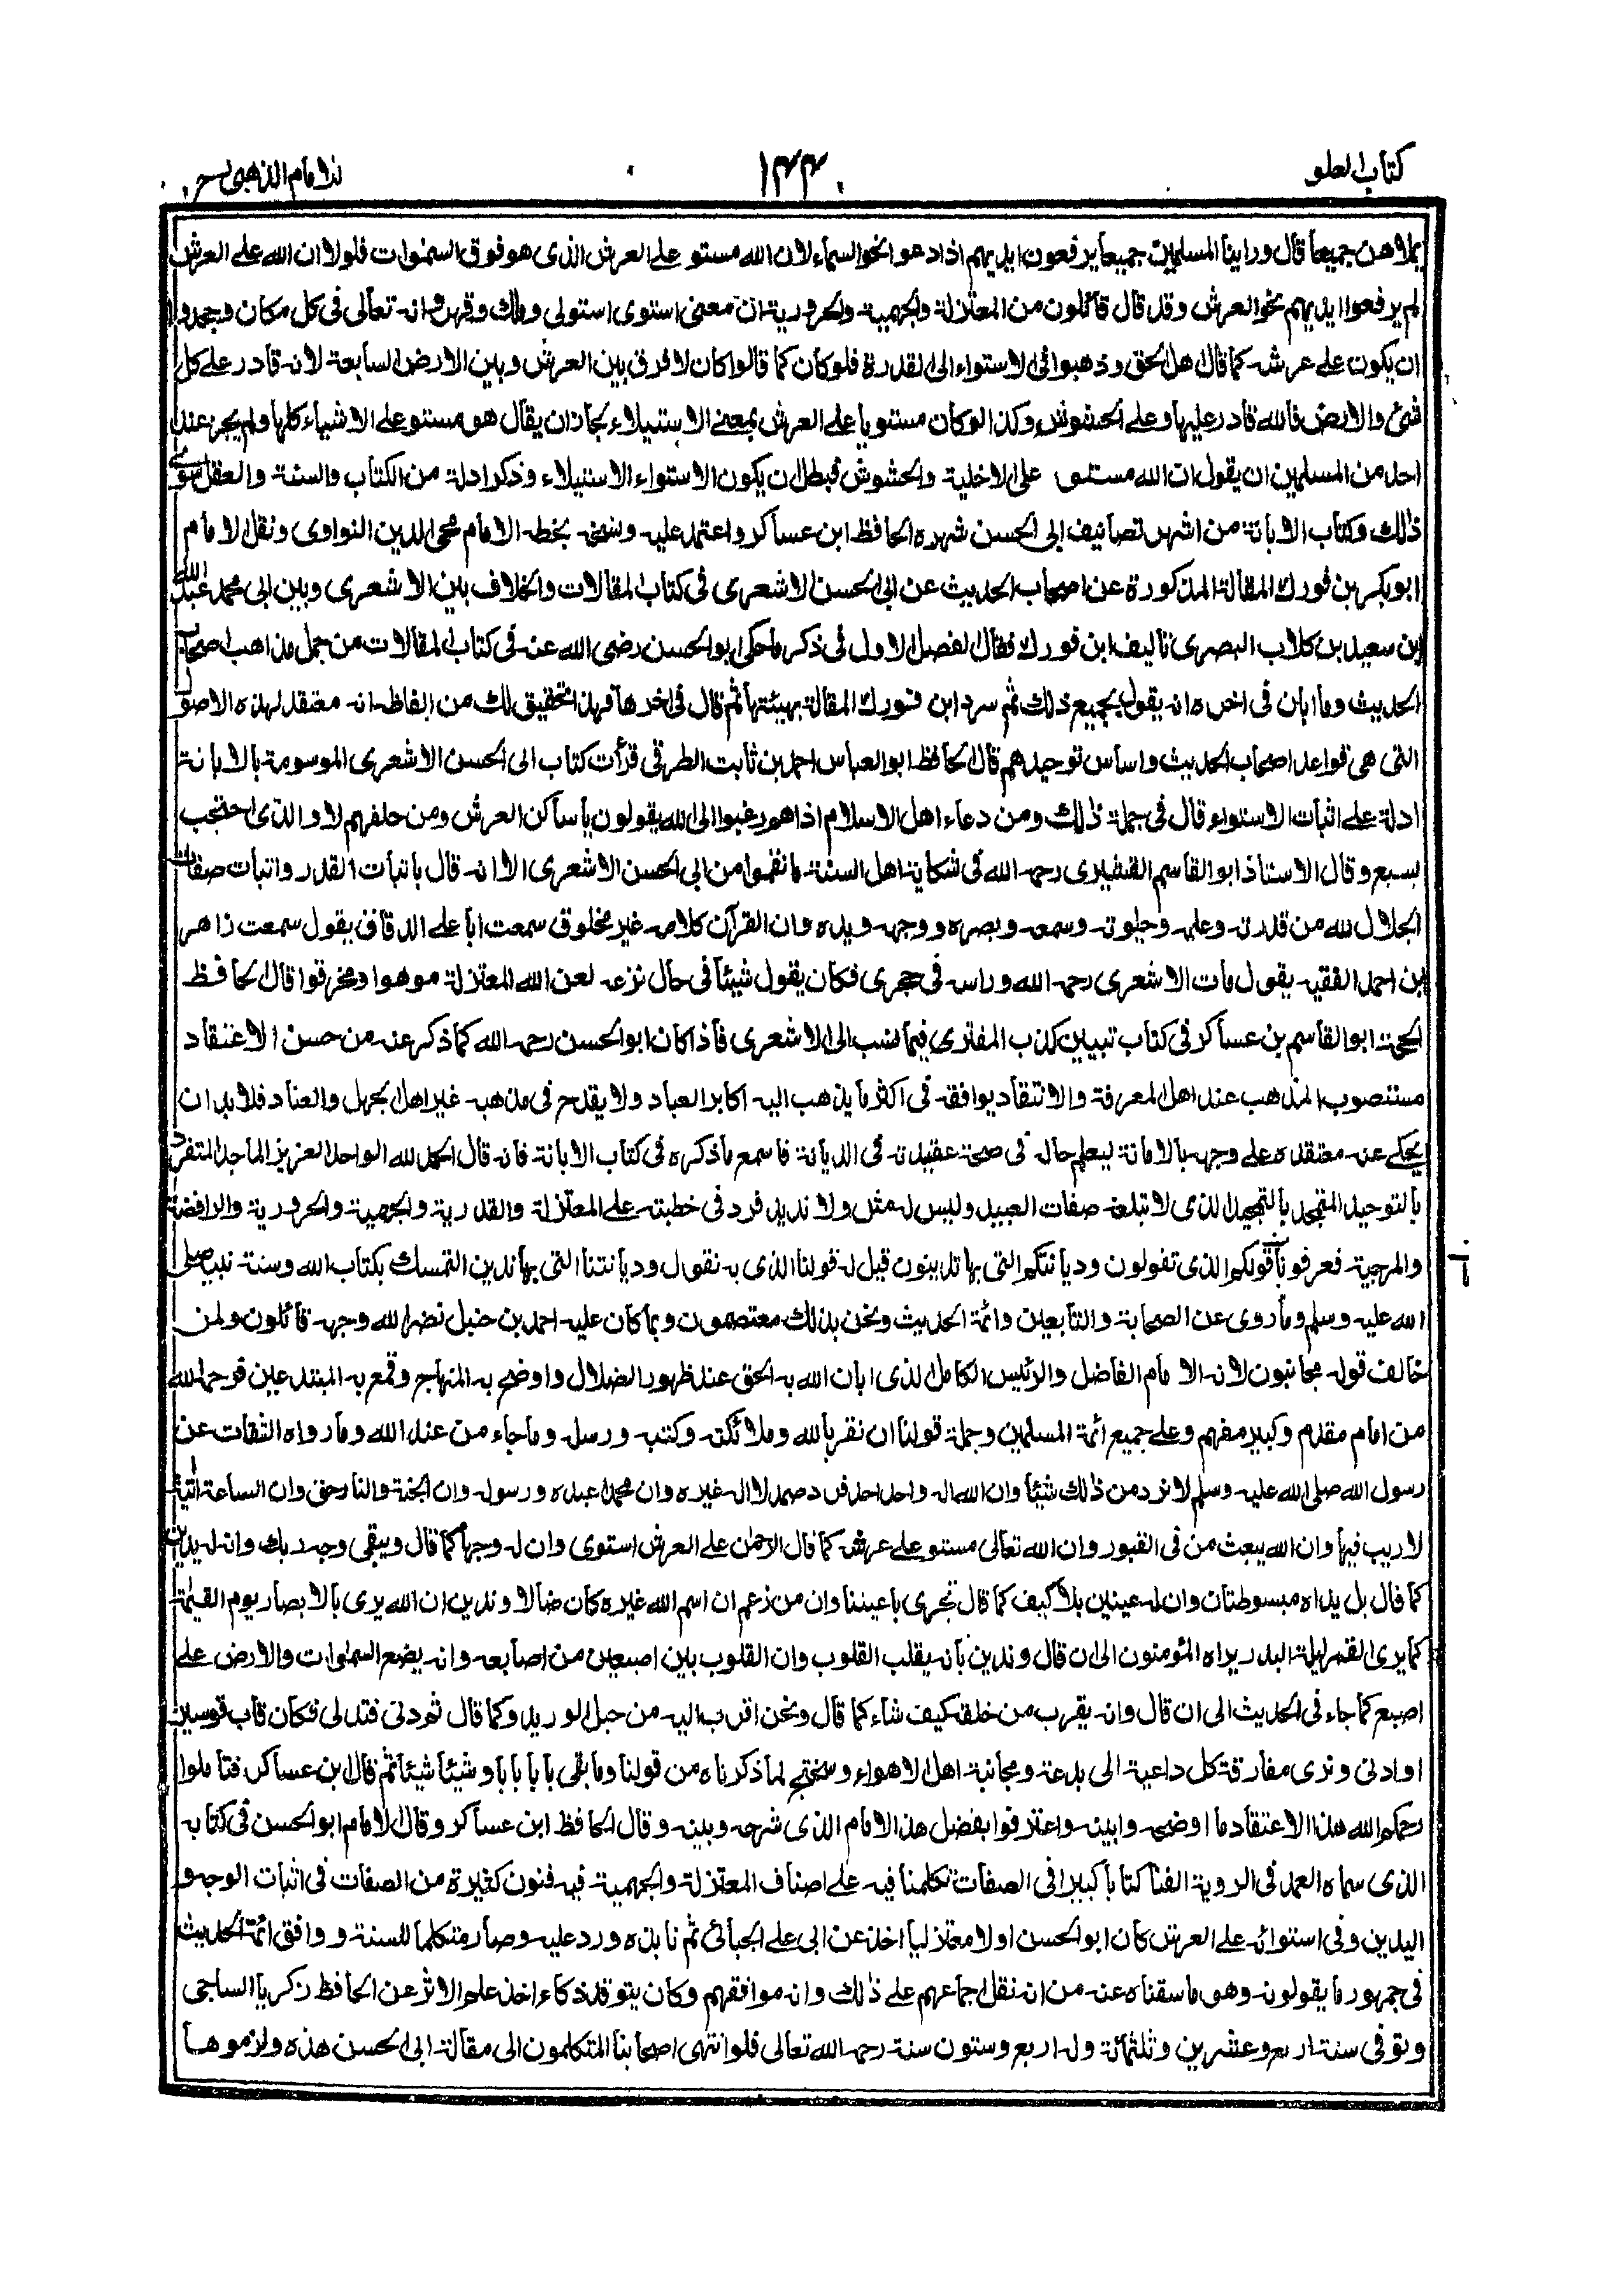 كتاب العلو ١٣٣ للامام الذهبي رح
يملاهن جميعا قال وراينا المسلمين جميعا يرفعون ايديهم اذا دعوا نحو السماء لان الله مستو على العرش الذى هو فوق السمٰوات فلولا ان الله على العرش
لم يرفعوا ايديهم نحو العرش وقد قال قائلون من المعتزلة والجهمية والحرورية ان معنى استوى استولى وملك وقهر وانه تعالى فى كل مكان وجحدوا
ان يكون على عرشه كما قال اهل الحق وذهبوا فى الاستواء الى القدرة فلو كان كما قالوا كان لا فرق بين العرش وبين الارض السابعة لانه قادر على كل
شئ والارض فالله قادر عليها وعلى الحشوش وكذا لو كان مستويا على العرش بمعنى الاستيلاء لجاز ان يقال هو مستو على الاشياء كلها ولم يجز عند
احد من المسلمين ان يقول ان الله مستو على الاخلية والحشوش فبطل ان يكون الاستواء الاستيلاء وذكر ادلة من الكتاب والسنة والعقل سوى
ذٰلك وكتاب الابانة من اشهر تصانيف ابى الحسن شهره الحافظ ابن عساكر واعتمد عليه ونسخه بخطه الامام محى الدين النواوى ونقل الامام
ابو بكر بن فورك المقالة المذكورة عن اصحاب الحديث عن ابى الحسن الاشعرى فى كتاب المقالات والخلاف بين الاشعرى وبين ابى محمد عبد الله
بن سعيد بن كلاب البصرى تاليف ابن فورك فقال الفصل الاول فى ذكر ما حكى ابو الحسن رضى الله عنه فى كتاب المقالات من جمل مذاهب اصحاب
الحديث وما ابان فى اخره انه يقول بجميع ذلك ثم سرد ابن فورك المقالة بهيئتها ثم قال فى اخرها فهذا تحقيق لك من الفاظه انه معتقد لهذه الاصول
التى هى قواعد اصحاب الحديث واساس توحيدهم قال الحافظ ابو العباس احمد بن ثابت الطرقى قرأت كتاب ابى الحسن الاشعرى الموسومة بالابانة
ادلة على اثبات الاستواء قال فى جملة ذٰلك ومن دعاء اهل الاسلام اذا هم رغبوا الى الله يقولون يا ساكن العرش ومن حلفهم لا والذى احتجب
بسبع وقال الاستاذ ابو القاسم القشيرى رحمه الله فى شكاية اهل السنة ما نقموا من ابى الحسن الاشعرى الا انه قال باثبات القدر واثبات صفات
الجلال لله من قدرته وعلمه وحيوته وسمعه وبصره ووجهه ويده وان القرآن كلامه غير مخلوق سمعت ابا على الدقاق يقول سمعت زاهر
بن احمد الفقيه يقول مات الاشعرى رحمه الله وراسه فى حجرى فكان يقول شيئا فى حال نزعه لعن الله المعتزلة موهوا ومخرقوا قال الحافظ
الحجة ابو القاسم بن عساكر فى كتاب تبيين كذب المفترى فيما نسب الى الاشعرى فاذا كان ابو الحسن رحمه الله كما ذكر عنه من حسن الاعتقاد
مستصوب المذهب عند اهل المعرفة والانتقاد يوافقه فى اكثر ما يذهب اليه اكابر العباد ولا يقدح فى مذهبه غير اهل الجهل والعناد فلا بد ان
يحكى عنه معتقده على وجهه بالامانة ليعلم حاله فى صحة عقيدته فى الديانة فاسمع ما ذكره فى كتاب الابانة فانه قال الحمد لله الواحد العزيز الماجد المتفرد
بالتوحيد المتمجد بالتمجيد الذى لا تبلغه صفات العبيد وليس له مثل ولا نديد فرد فى خطبته على المعتزلة والقدرية والجهمية والحرورية والرافضة
والمرجية فعرفونا قولكم الذى تقولون وديانتكم التى بها تدينون قيل له قولنا الذى به نقول وديانتنا التى بها ندين التمسك بكتاب الله وسنة نبيه صلى
الله عليه وسلم وما روى عن الصحابة والتابعين وائمة الحديث ونحن بذلك معتصمون وبما كان عليه احمد بن حنبل نضر الله وجهه قائلون ولمن
خالف قوله مجانبون لانه الامام الفاضل والرئيس الكامل الذى ابان الله به الحق عند ظهور الضلال واوضح به المنهاج وقمع به المبتدعين فرحمة الله
من امام مقدم وكبير مفهم وعلى جميع ائمة المسلمين وجملة قولنا ان نقر بالله وملائكته وكتبه ورسله وما جاء من عند الله وما رواه الثقات عن
رسول الله صلى الله عليه وسلم لا نرد من ذٰلك شيئا وان الله اله واحد احد فرد صمد لا اله غيره وان محمدا عبده ورسوله وان الجنة والنار حق وان الساعة اتية
لا ريب فيها وان الله يبعث من فى القبور وان الله تعالى مستو على عرشه كما قال الرحمٰن على العرش استوى وان له وجها كما قال ويبقى وجه ربك وان له يدين
كما قال بل يداه مبسوطتان وان له عينين بلا كيف كما قال تجرى باعيننا وان من زعم ان اسم الله غيره كان ضالا وندين ان الله يرى بالابصار يوم القيٰمة
كما يرى القمر ليلة البدر يراه المؤمنون الى ان قال وندين بانه يقلب القلوب وان القلوب بين اصبعين من اصابعه وانه يضع السمٰوات والارض على
اصبع كما جاء فى الحديث الى ان قال وانه يقرب من خلقه كيف شاء كما قال ونحن اقرب اليه من حبل الوريد وكما قال ثم دنى فتدلى فكان قاب قوسين
او ادنى ونرى مفارقة كل داعية الى بدعة ومجانبة اهل الاهواء وسنحتج لما ذكرناه من قولنا وما بقى بابا بابا وشيئا شيئا ثم قال ابن عساكر فتاملوا
رحمكم الله هذا الاعتقاد ما اوضحه وابينه واعترفوا بفضل هذا الامام الذى شرحه وبينه وقال الحافظ ابن عساكر وقال الامام ابو الحسن فى كتابه
الذى سماه العمد فى الروية الفنا كتابا كبيرا فى الصفات تكلمنا فيه على اصناف المعتزلة والجهمية فيه فنون كثيرة من الصفات فى اثبات الوجه و
اليدين وفى استوائه على العرش كان ابو الحسن اولا معتزليا اخذ عن ابى على الجبائى ثم نابذه ورد عليه وصار متكلما للسنة ووافق ائمة الحديث
فى جمهور ما يقولونه وهو ما سقناه عنه من انه نقل اجماعهم على ذٰلك وانه موافقهم وكان يتوقد ذكاء اخذ علم الاثر عن الحافظ زكريا الساجى
وتوفى سنة اربع وعشرين وثلثمائة وله اربع وستون سنة رحمه الله تعالى فلو انتهى اصحابنا المتكلمون الى مقالة ابى الحسن هذه ولزموها